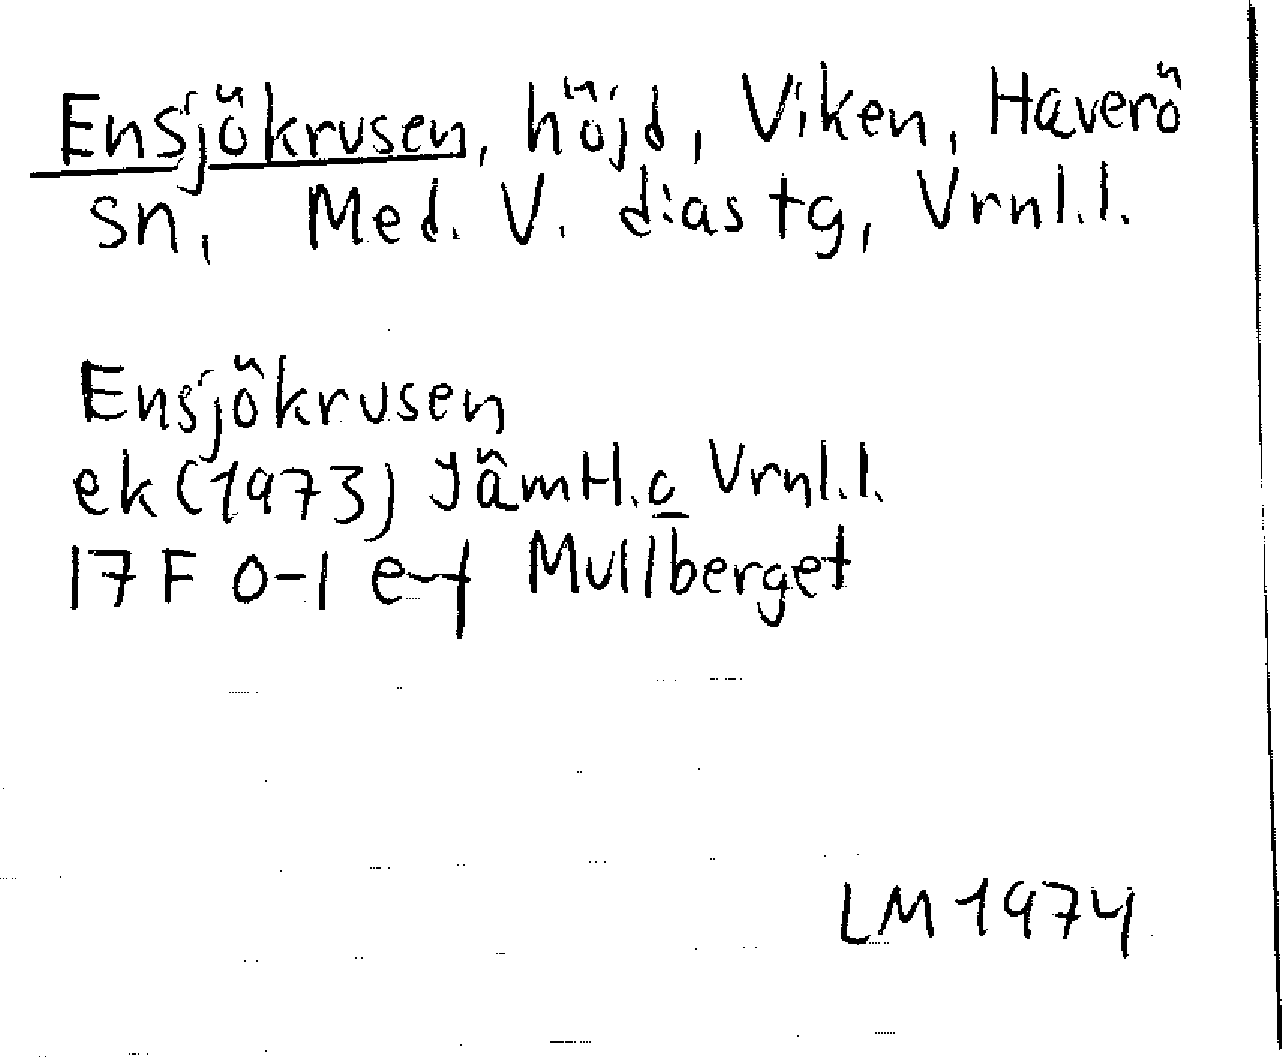 Ensjökrusen, höjd, Viken, Haverö
sn, Med. V. diastg, Vrnl.l.
Ensjökrusen
ek (1973) Jämtl.c Vrnl.l.
17 F 0-1 e-f Mullberget
LM 1974